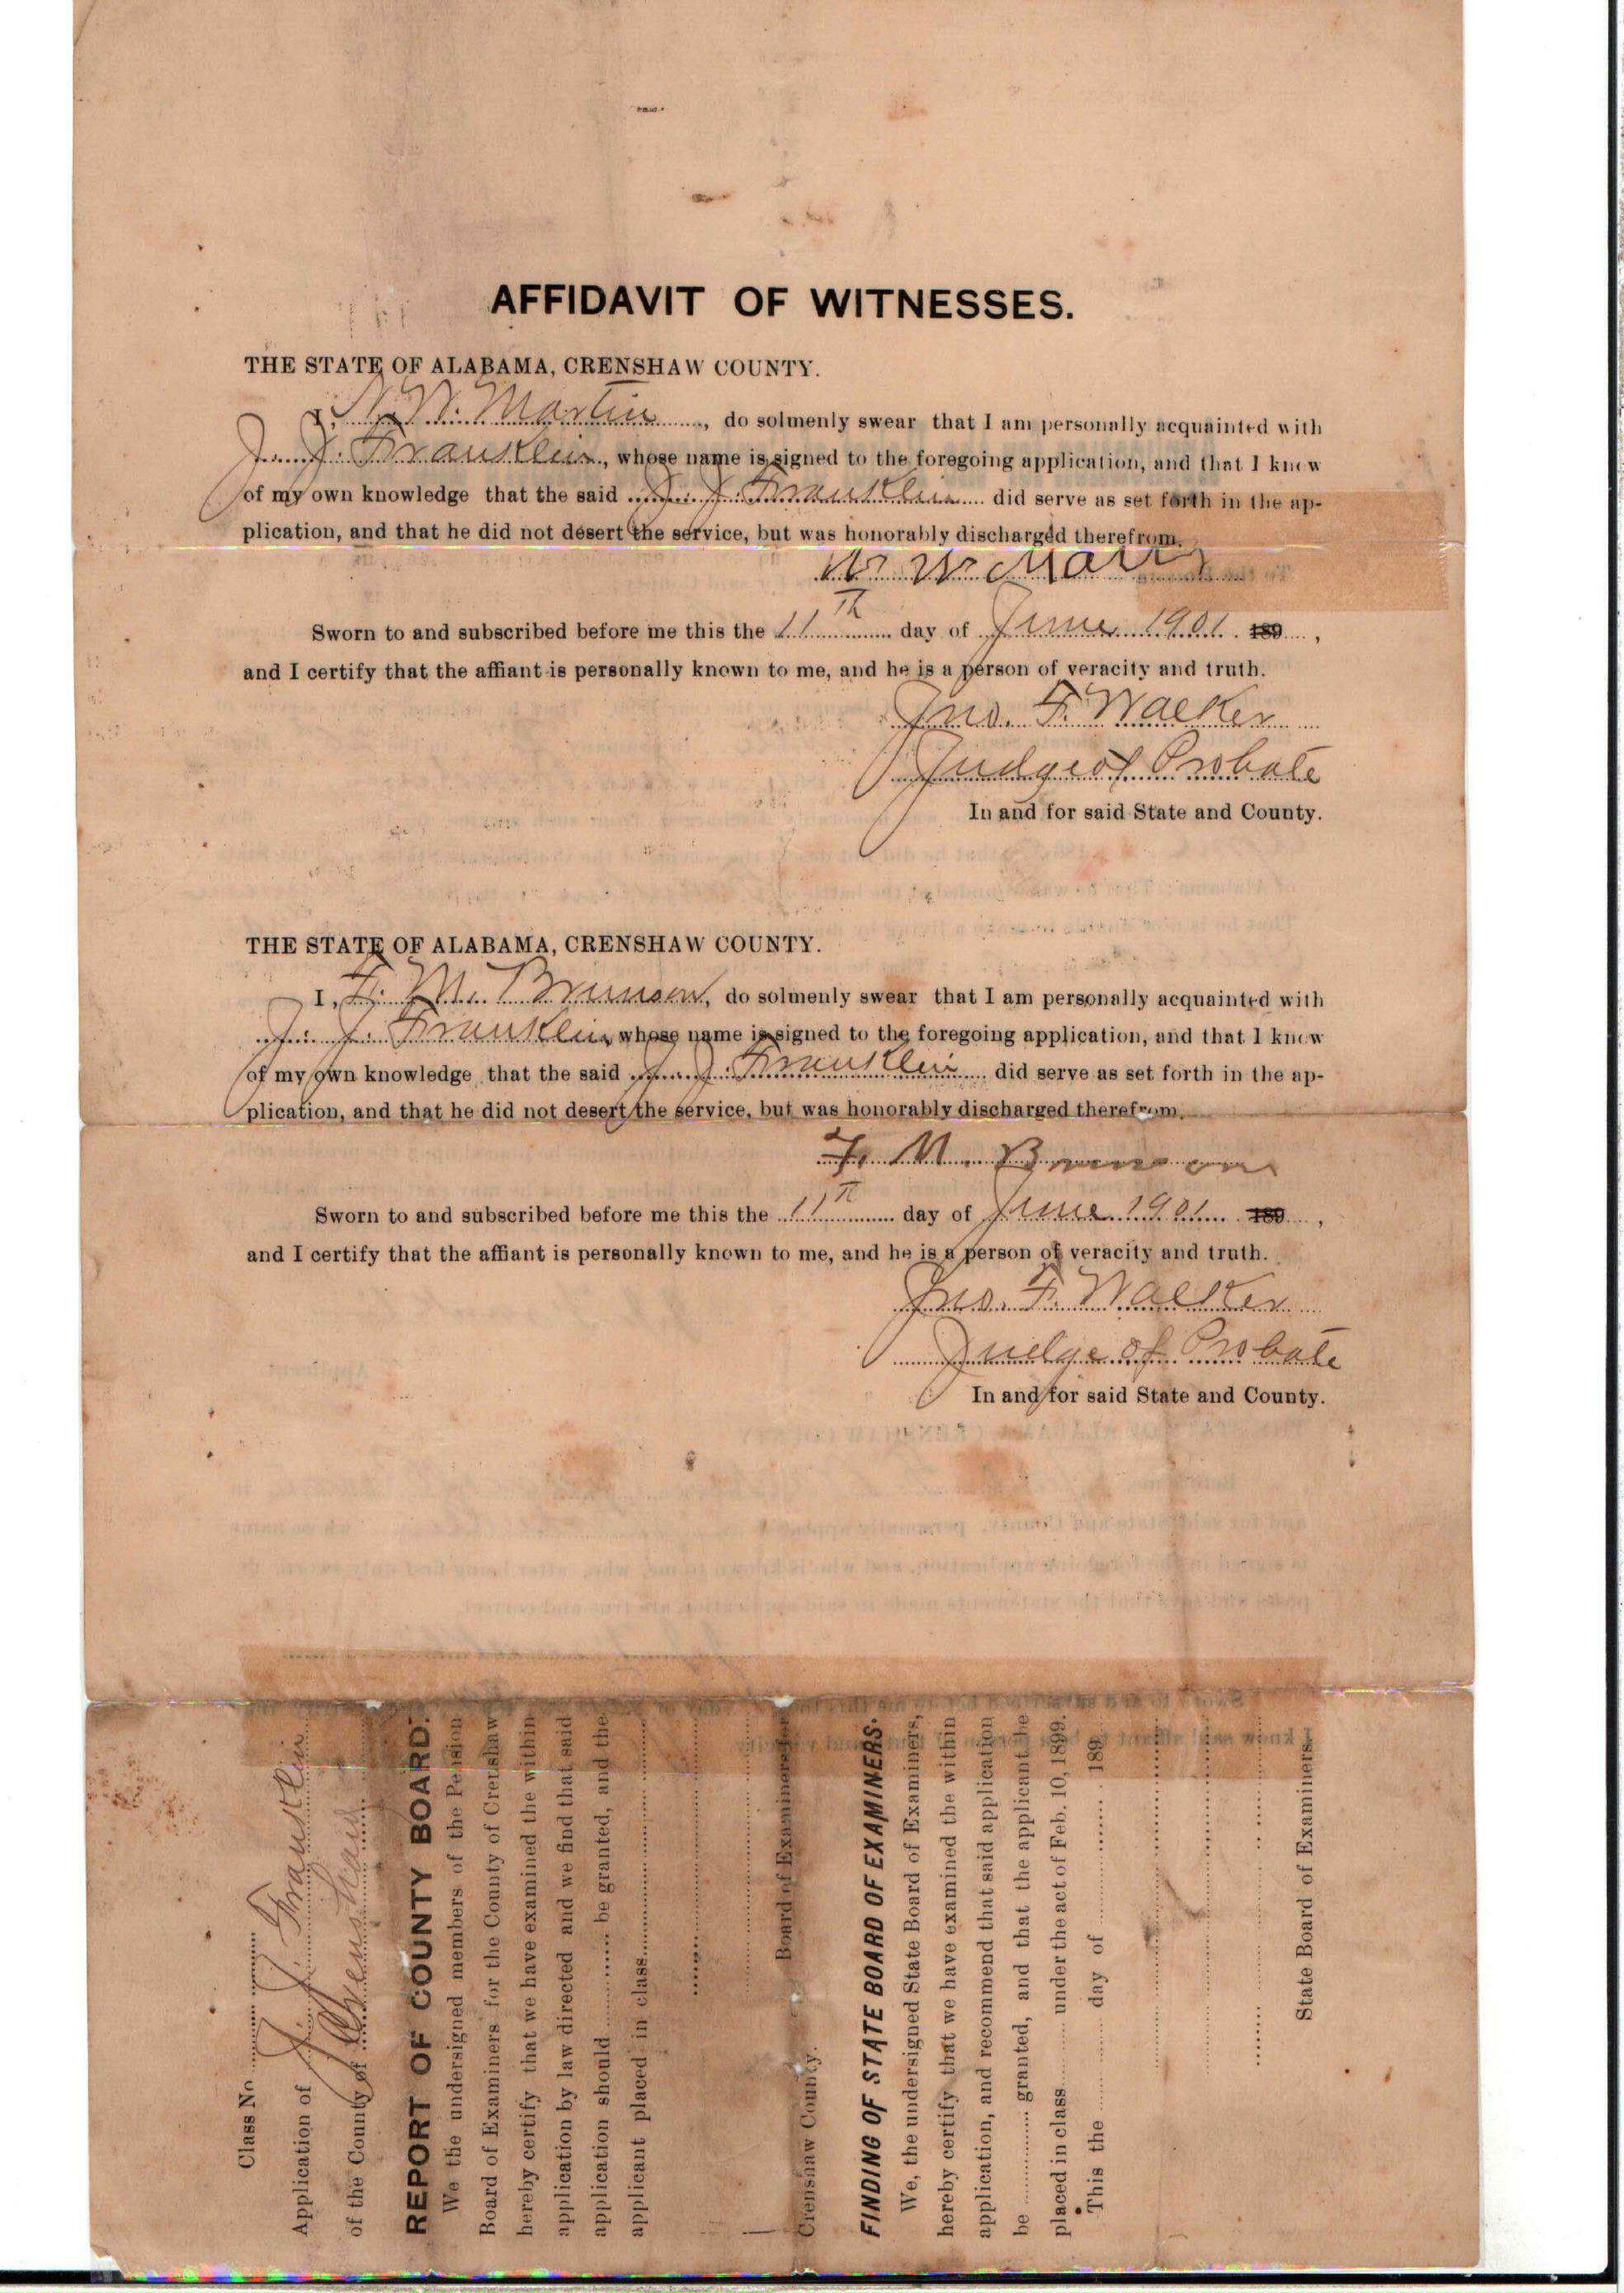 AFFIDAVIT OF WITNESSES.
THE STATE OF ALABAMA, CRENSHAW COUNTY.
I, W. W. Martin, do solmenly swear that I am personally acquainted with
J. J. Franklin, whose name is signed to the foregoing application, and that I know
of my own knowledge that the said J. J. Franklin did serve as set forth in the ap-
plication, and that he did not desert the service, but was honorably discharged therefrom.
W W Mart
Sworn to and subscribed before me this the 11th day of June 1901 189 ,
and I certify that the affiant is personally known to me, and he is a person of veracity and truth.
Jno. F. Walker
Judge of Probate
In and for said State and County.
THE STATE OF ALABAMA, CRENSHAW COUNTY.
I, F. M. Brunson, do solmenly swear that I am personally acquainted with
J. J. Franklin, whose name is signed to the foregoing application, and that I know
of my own knowledge that the said J. J. Franklin did serve as set forth in the ap-
plication, and that he did not desert the service, but was honorably discharged therefrom.
F. M. Brunson
Sworn to and subscribed before me this the 11th day of June 1901 189 ,
and I certify that the affiant is personally known to me, and he is a person of veracity and truth.
Jno. F. Walker
Judge of Probate
In and for said State and County.
Class No
Application of J. J. Franklin
of the County of Crenshaw
REPORT OF COUNTY BOARD.
We the undersigned members of the Pension
Board of Examiners for the County of Crenshaw
hereby certify that we have examined the within
application by law directed and we find that said
application should be granted, and the
applicant placed in class
Board of Examiners for
Crenshaw County.
FINDING OF STATE BOARD OF EXAMINERS.
We, the undersigned State Board of Examiners,
hereby certify that we have examined the within
application, and recommend that said application
be granted, and that the applicant be
placed in class under the act of Feb. 10, 1899.
This the day of 189
State Board of Examiners.